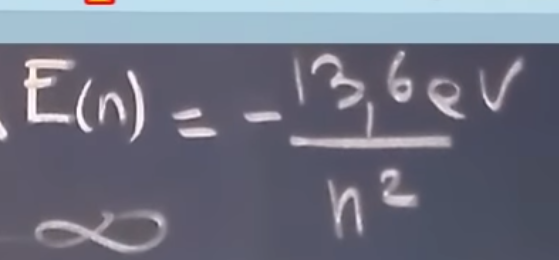 E(n) = - 13,6 eV / n²
∞